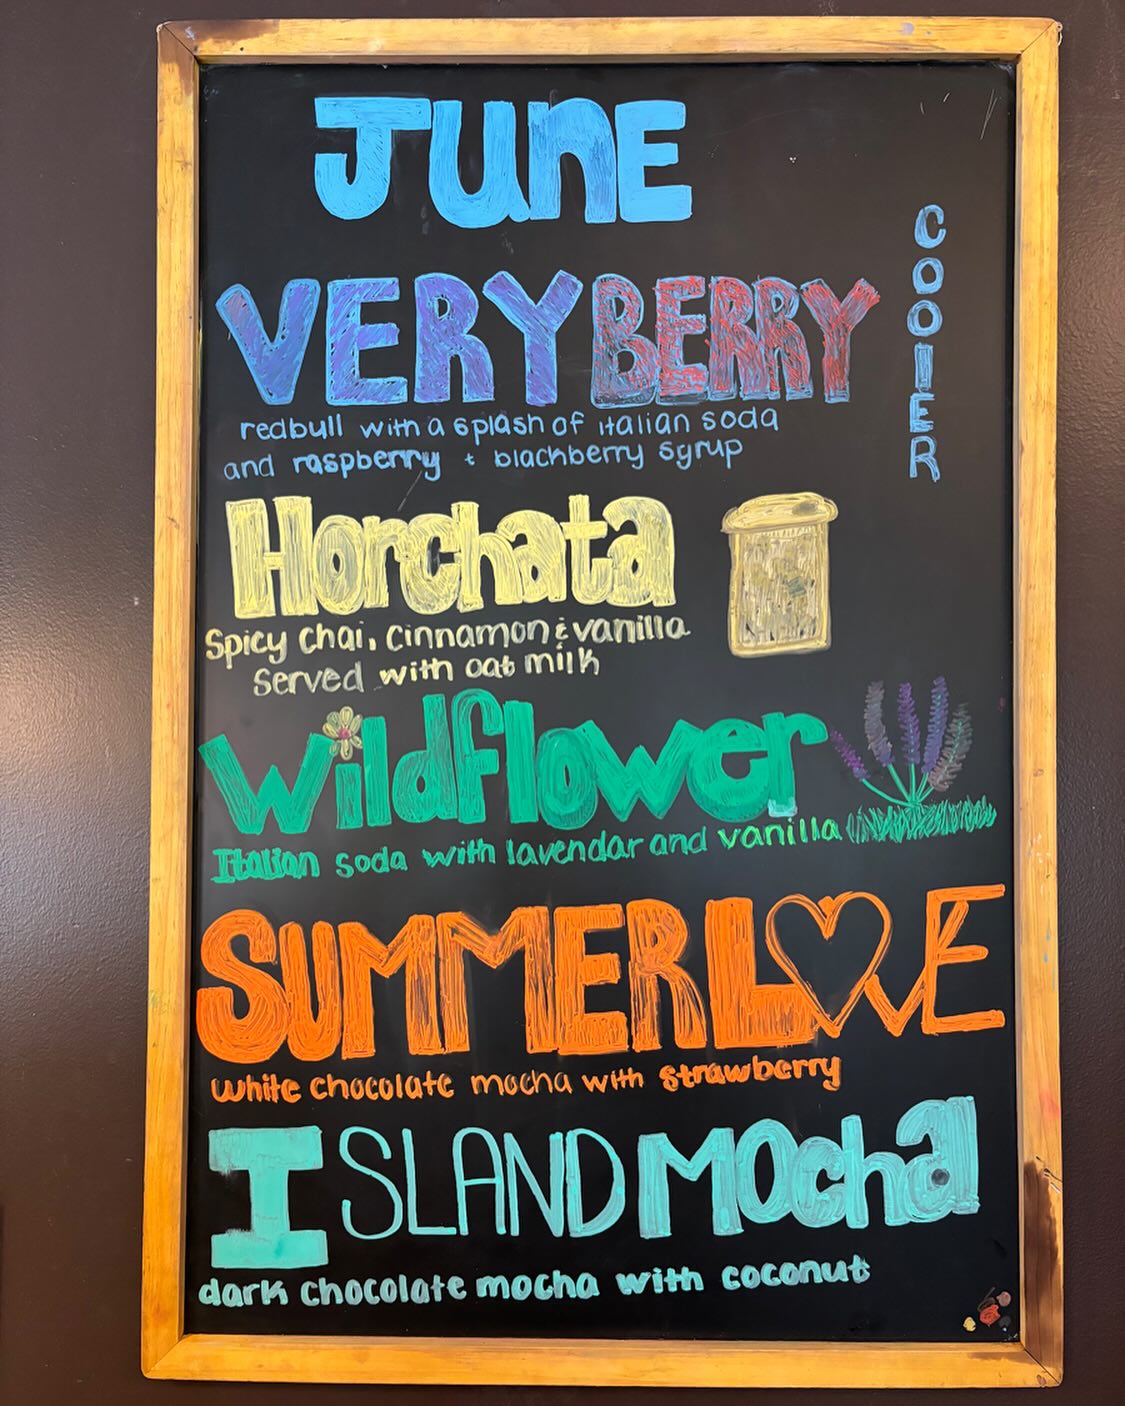 JUnE
VERY BERRY
COOlER
redbull with a splash of italian soda
and raspberry + blackberry syrup
Horchata
Spicy chai, cinnamon & vanilla
Served with oat milk
Wildflower
Italian soda with lavendar and vanilla
SUMMER LOVE
white chocolate mocha with strawberry
ISLAND MOcha
dark chocolate mocha with coconut